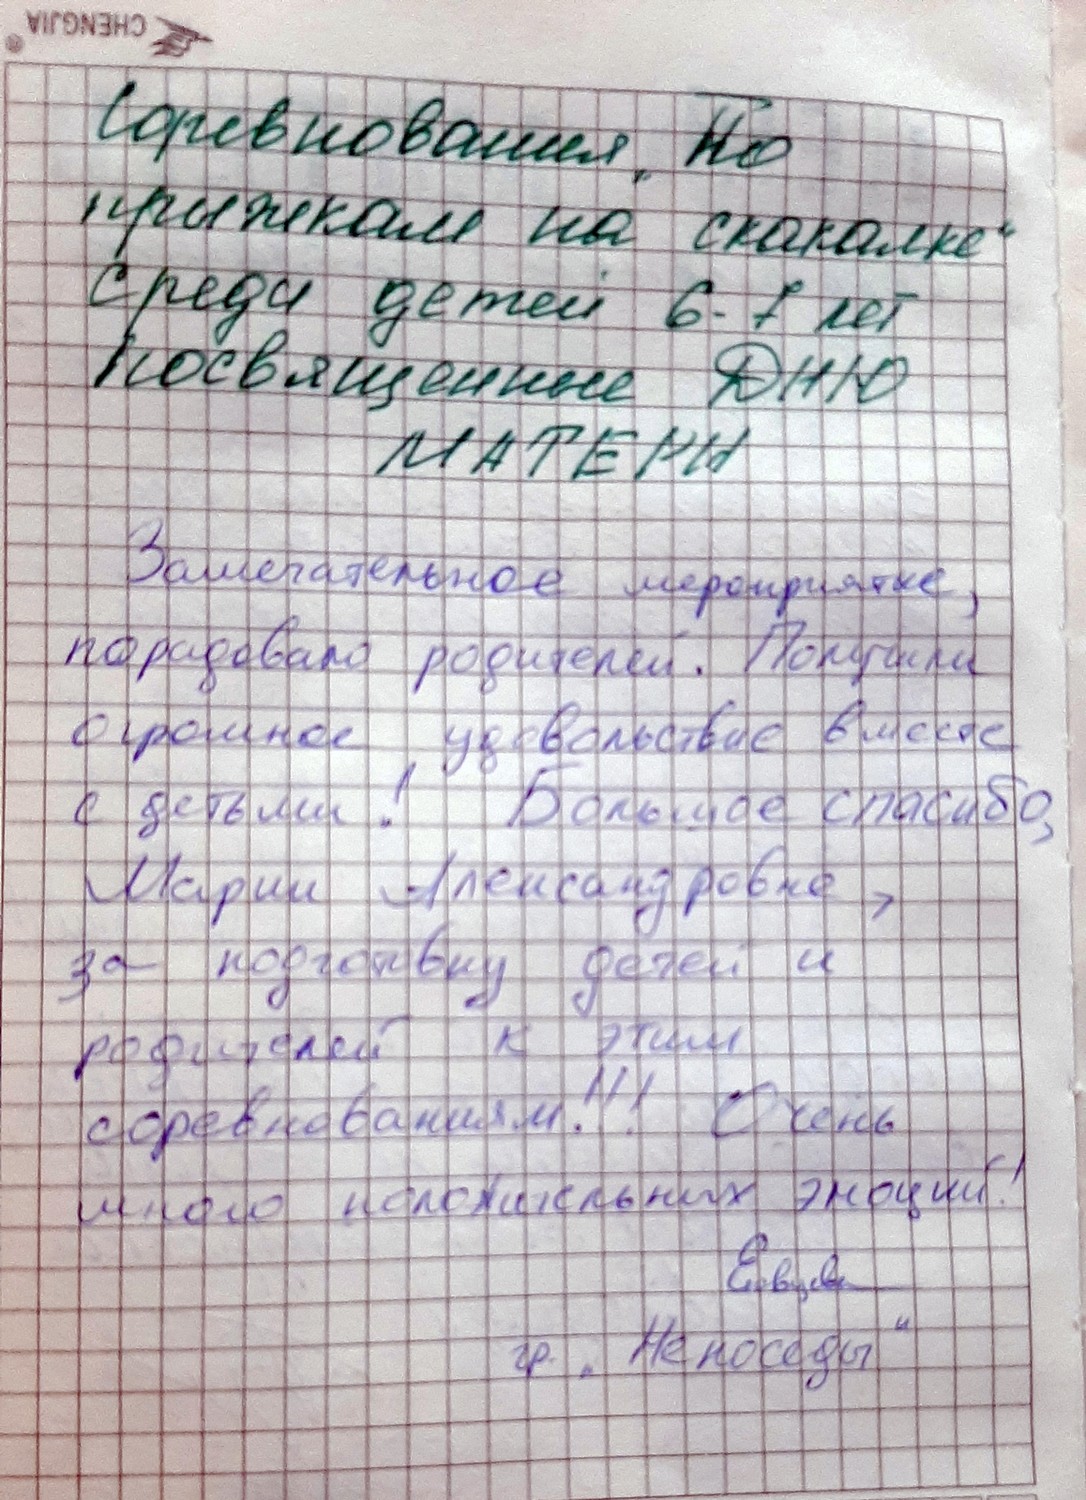 CHENGJIA
Соревнования „По
прыжкам на скакалке“
среди детей 6-7 лет
посвященные ДНЮ
МАТЕРИ
Замечательное мероприятие,
порадовало родителей. Получили
огромное удовольствие вместе
с детьми! Большое спасибо,
Марии Александровне,
за подготовку детей и
родителей к этим
соревнованиям!!! Очень
много положительных эмоций!
гр. „Непоседы“